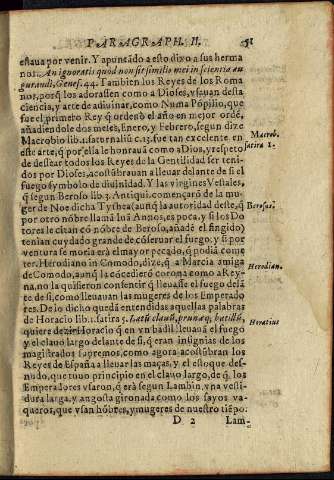 PARAGRAPH. II.
estaua por venir. Y apuntãdo a esto dixo a sus herma
nos. An ignoratis quod non sit similis mei in sciencia au
gurandi, Genes. 44. Tambien los Reyes de los Roma
nos, porq̃ los adorassen como a Dioses, vsauan desta
ciencia, y arte de adiuinar, como Numa Põpilio, que
fue el primero Rey q̃ ordenò el año en mejor ordẽ,
añadiendole dos meses, Enero, y Febrero, segun dize
Macrobio lib. 1. saturnaliũ c. 13. fue tan excelente en
este arte, q̃ por ella le honrauã como a Dios, y respeto
de dessear todos los Reyes de la Gentilidad ser teni-
dos por Dioses, acostũbrauan a lleuar delante de si el
fuego symbolo de diuinidad. Y las virgines Vestales,
q̃ segun Beroso lib. 3. Antiqui. començarõ de la mu-
ger de Noe dicha Tysthea (aunq̃ la autoridad deste, q̃
por otro nõbre llamã Iuã Annos, es poca, y si los Do
tores le citan cõ nõbre de Beroso, añadẽ el fingido)
tenian cuydado grande de cõseruar el fuego; y si por
ventura se moria erà el mayor pecado, q̃ podiã come
ter. Herodiano in Comodo, dize, q̃ a Marcia amiga
de Comodo, aunq̃ la cõcedierõ corona como a Rey-
na, no la quisieron consentir q̃ lleuasse el fuego delã
te de si, como lleuauan las mugeres de los Emperado
res. De lo dicho quedã entendidas aquellas palabras
de Horacio lib. 1. satira 5. Latũ clauũ, prunæq; batillũ,
quiere dezir Horacio q̃ en vn badil lleuauã el fuego
y el clauo largo delante de si, q̃ eran insignias de los
magistrados supremos, como agora acostũbran los
Reyes de España a lleuar las maças, y el estoque des-
nudo, que tuuo principio en el clauo largo, de q̃ los
Emperadores vsaron, q̃ erà segun Lambin, vna vesti-
dura larga, y angosta gironada como los sayos va-
queros, que vsan hõbres, y mugeres de nuestro tiẽpo.
D 2 Lam-
Macrob.
satira 1.
Berosus.
Herodian.
Horatius